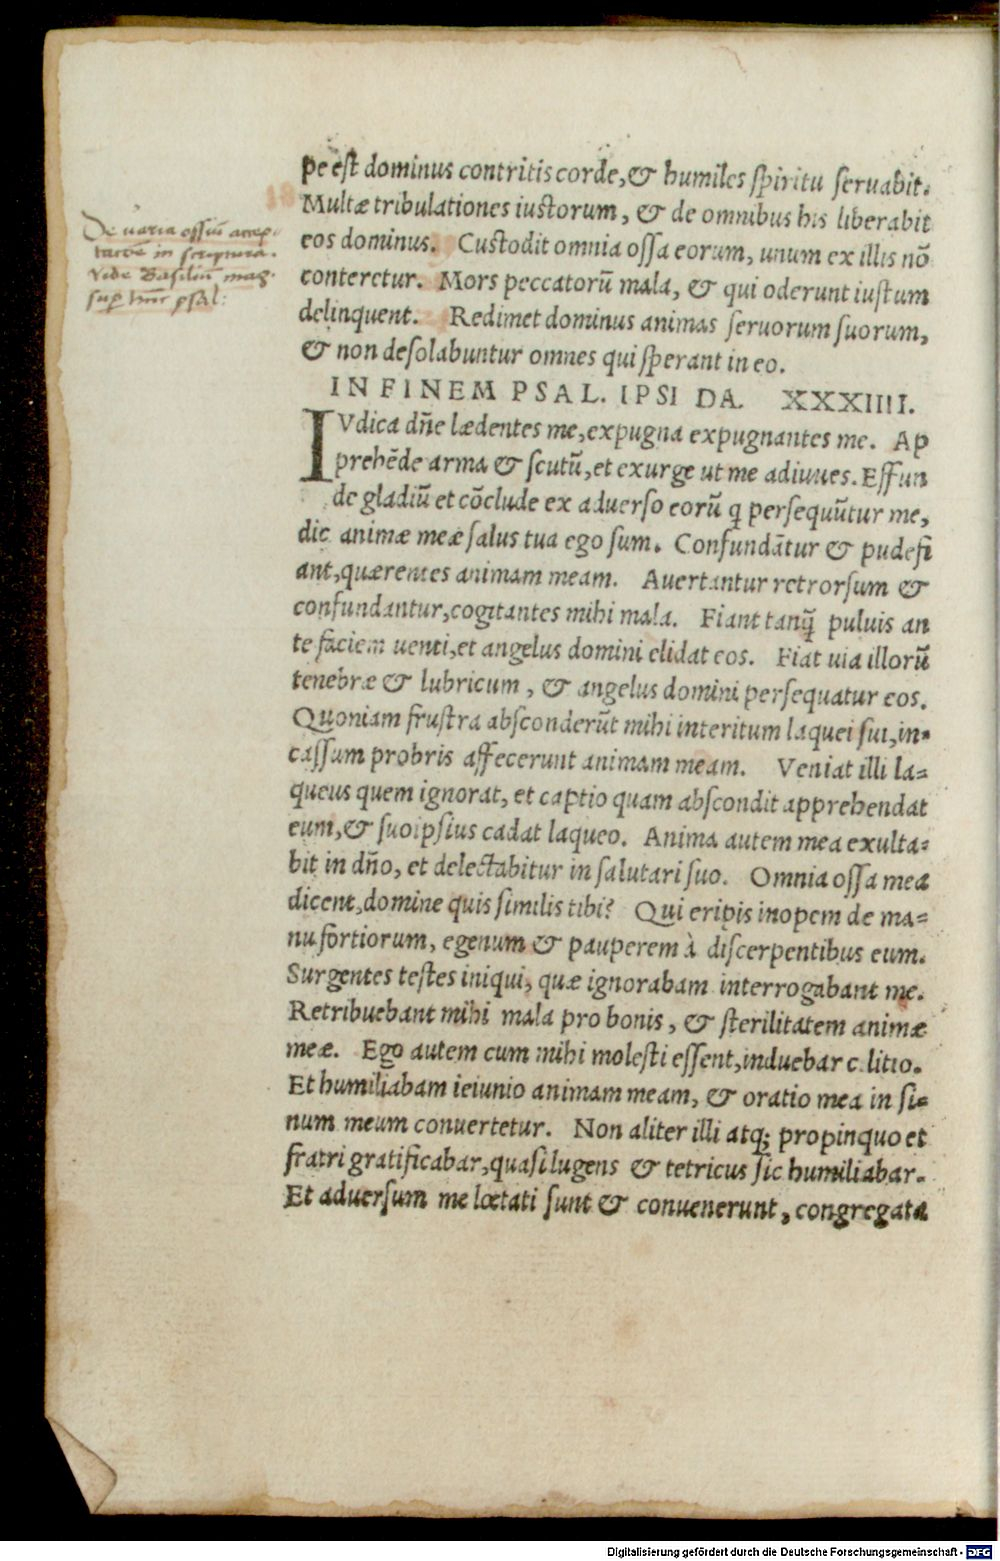 De uaria ossiũ accep
tatiõe in scriptura.
Vide Basiliũ mag.
sup hũc psal:
pe est dominus contritis corde, & humiles spiritu seruabit.
Multæ tribulationes iustorum, & de omnibus his liberabit
eos dominus. Custodit omnia ossa eorum, unum ex illis nõ
conteretur. Mors peccatorũ mala, & qui oderunt iustum
delinquent. Redimet dominus animas seruorum suorum,
& non desolabuntur omnes qui sperant in eo.
IN FINEM PSAL. IPSI DA. XXXIIII.
IVdica dñe lædentes me, expugna expugnantes me. Ap
prehẽde arma & scutũ, et exurge ut me adiuues. Effun
de gladiũ et cõclude ex aduerso eorũ q persequũtur me,
dic animæ meæ salus tua ego sum. Confundãtur & pudefi
ant, quærentes animam meam. Auertantur retrorsum &
confundantur, cogitantes mihi mala. Fiant tanq̃ puluis an
te faciem uenti, et angelus domini elidat eos. Fiat uia illorũ
tenebræ & lubricum, & angelus domini persequatur eos.
Quoniam frustra absconderũt mihi interitum laquei sui, in-
cassum probris affecerunt animam meam. Veniat illi la=
queus quem ignorat, et captio quam abscondit apprehendat
eum, & suoipsius cadat laqueo. Anima autem mea exulta=
bit in dño, et delectabitur in salutari suo. Omnia ossa mea
dicent, domine quis similis tibi? Qui eripis inopem de ma=
nu fortiorum, egenum & pauperem à discerpentibus eum.
Surgentes testes iniqui, quæ ignorabam interrogabant me.
Retribuebant mihi mala pro bonis, & sterilitatem animæ
meæ. Ego autem cum mihi molesti essent, induebar cilitio.
Et humiliabam ieiunio animam meam, & oratio mea in si=
num meum conuertetur. Non aliter illi atq; propinquo et
fratri gratificabar, quasi lugens & tetricus sic humiliabar.
Et aduersum me lœtati sunt & conuenerunt, congregata
Digitalisierung gefördert durch die Deutsche Forschungsgemeinschaft - DFG